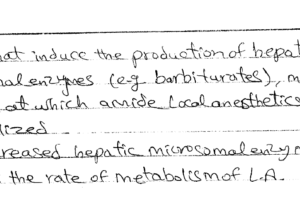 at induce the production of hepat
nal enzymes (e.g barbiturates), m
at which amide Local anesthetics
lized
reased hepatic microsomal enzym
the rate of metabolism of L.A.